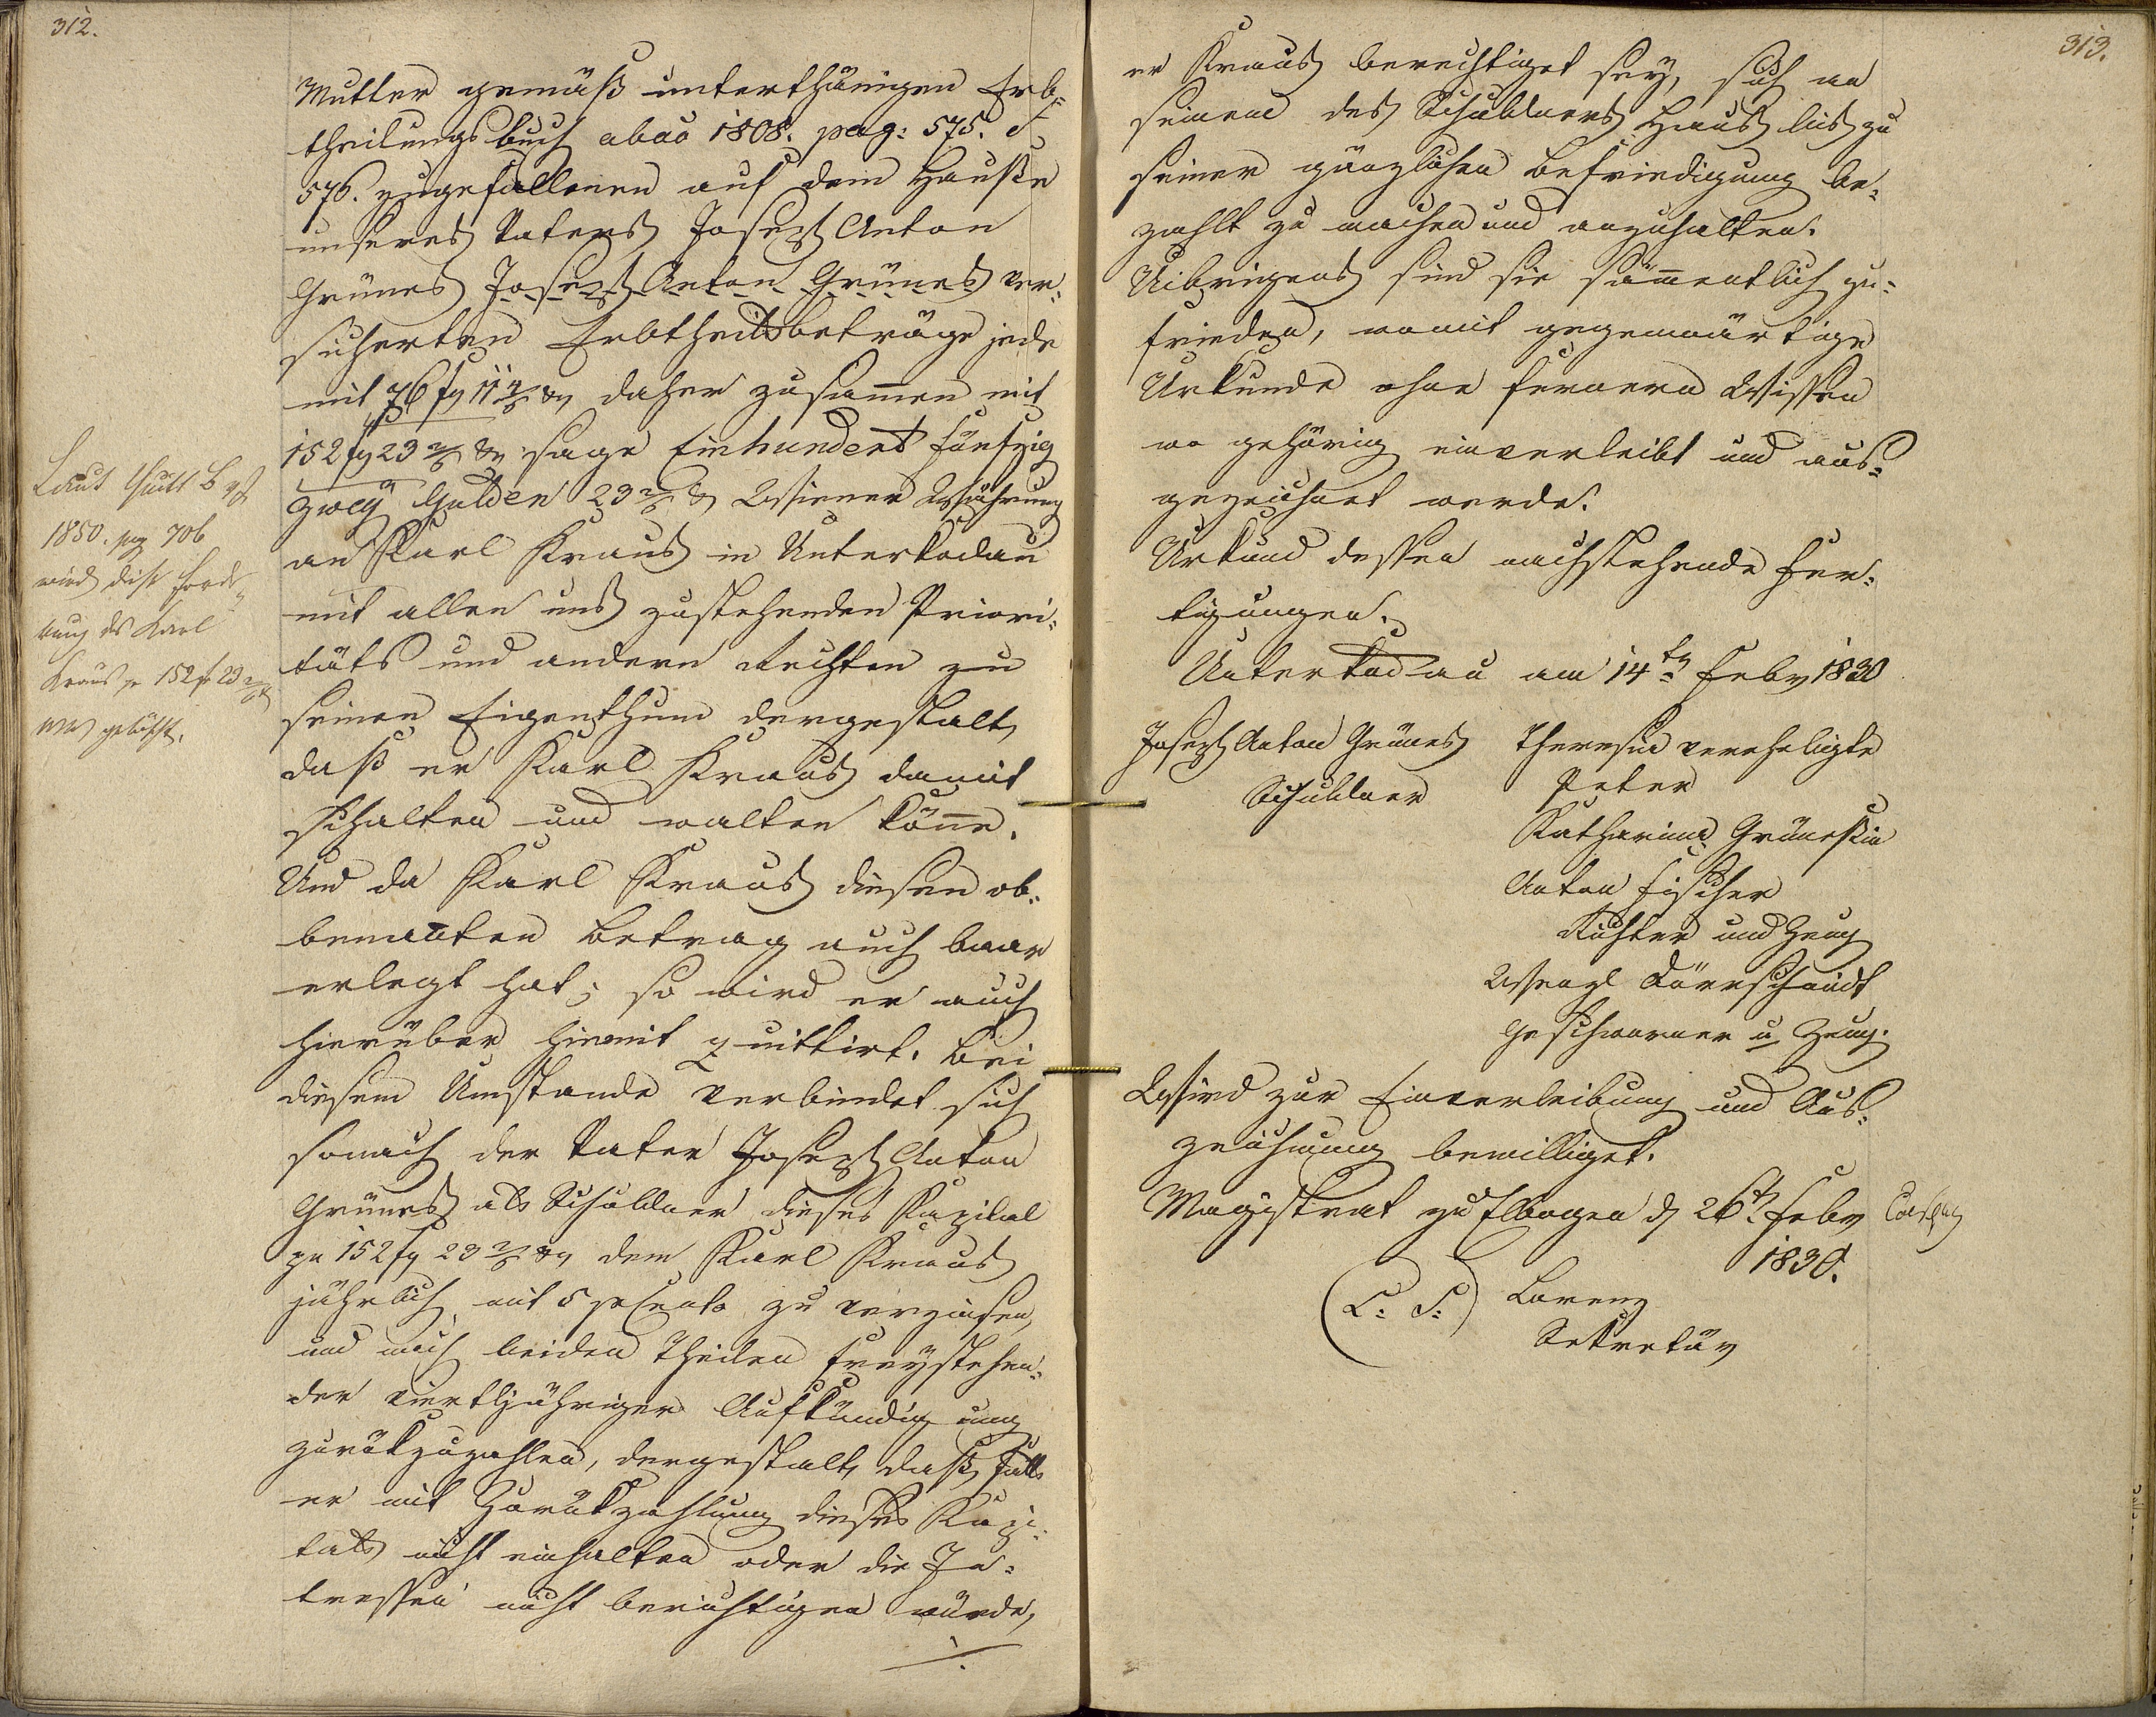 312.
Mutter gemäß unterthänigen Erb-
theilungsbuch abao 1808. pag: 575. &
576. zugefallenen auf dem Hauße
unseres Vaters Joseph Anton
Grünes Joseph Anton Grünes ver-
sicherten Erbtheilsbeträge jede
mit 76 f 11 x daher zusam̄en mit
152 f 23 x sage Einhundert fünfzig
zwey Gulden 23 x Wiener Währung
an Karl Kraus in Unterkodau
mit allen uns zustehenden Priori-
täts und andern Rechten zu
seinen Eigenthum dergestalt,
daß er Karl Kraus damit
schalten und walten kön̄e.
Und da Karl Kraus diesen ob-
benan̄ten Betrag auch baar
erlegt hat; so wird er auch
hierüber hiemit quittirt. Bei
diesem Umstande verbindet sich
sonach der Vater Joseph Anton
Grünes als Schuldner dieses Kapital
pr 152 f 23 x dem Karl Kraus
jährlich mit 5 pCento zu verzinsen,
und nach beiden Theilen freystehen-
der viertljähriger Aufkündigung
zurükzuzahlen, dergestalt, daß, falls
er mit Zurükzahlung dieses Kapi-
tals nicht einhalten oder die In-
tressen nicht berichtigen würde,
./.
Laut Quitt B
1850. pag 706
wird diese Forde-
rung des Karl
Kraus pr 152 f 23 x
WW gelöscht.
313.
er Kraus berechtiget sey, sich an
seinem des Schuldners Haus bis zu
seiner gänzlichen Befriedigung be-
zahlt zu machen und anzuhalten.
Uibrigens sind sie säm̄entlich zu-
frieden, womit gegenwärtige
Urkunde ohne fernern Wissen
wo gehörig einverleibt und aus-
gezeichnet werde.
Urkund dessen nachstehende Fer-
tigungen.
Unterkodau am 14tn Feby 1830
Joseph Anton Grünes Theresia vereheligte
Schuldner Peter
Katharina Grüneßin
Anton Fischer
Richter und Zeug
Wenzl Dörrschmidt
Geschworner u Zeug.
Wird zur Einverleibung und Aus-
zeichnung bewilliget.
Magistrat zu Elbogen d 26tn Feby
1830.
(L: S:) Lorenz
Sekretär